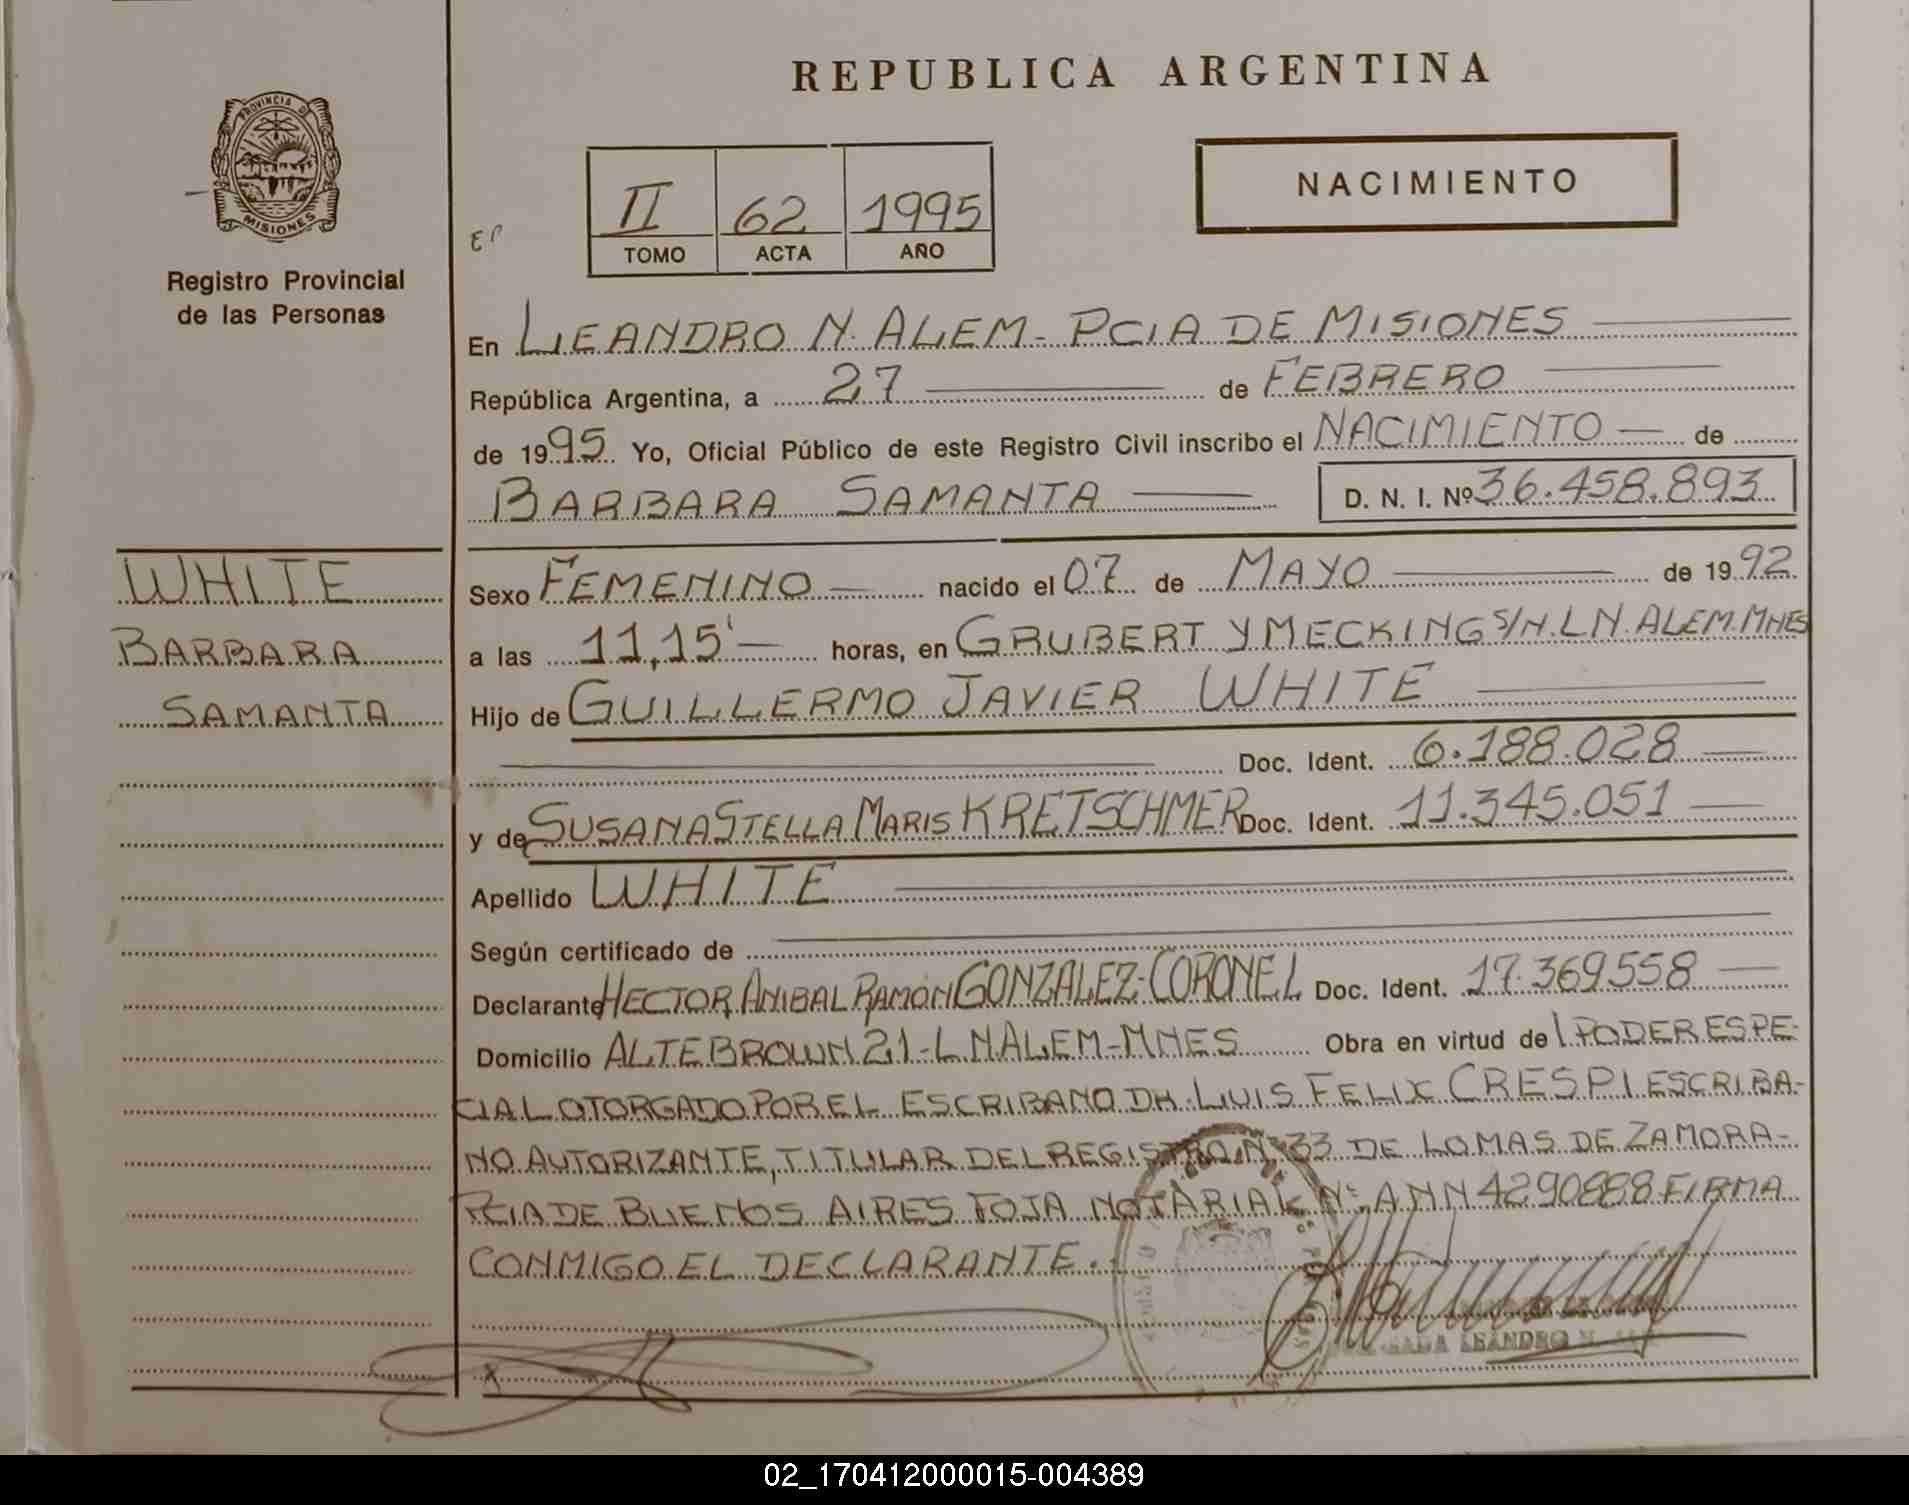 REPUBLICA ARGENTINA
PROVINCIA DE
MISIONES
Registro Provincial
de las Personas
NACIMIENTO
II 62 1995
TOMO ACTA AÑO
En LEANDRO N. ALEM - PCIA DE MISIONES
República Argentina, a 27 de FEBRERO
de 1995 Yo, Oficial Público de este Registro Civil inscribo el NACIMIENTO — de
BARBARA SAMANTA — D. N. I. Nº 36.458.893
WHITE
BARBARA
SAMANTA
Sexo FEMENINO — nacido el 07 de MAYO — de 1992
a las 11,15' — horas, en GRUBERT Y MECKING S/N. L N. ALEM. MNES
Hijo de GUILLERMO JAVIER WHITE —
Doc. Ident. 6.188.028 —
y de SUSANA STELLA MARIS KRETSCHMER Doc. Ident. 11.345.051 —
Apellido WHITE —
Según certificado de —
Declarante HECTOR ANIBAL RAMON GONZALEZ-CORONEL Doc. Ident. 17.369.558 —
Domicilio ALTE BROWN 21 - L N ALEM - MNES Obra en virtud de 1 PODER ESPE-
CIAL OTORGADO POR EL ESCRIBANO DN. LUIS FELIX CRESPI ESCRIBA-
NO AUTORIZANTE, TITULAR DEL REGISTRO Nº 33 DE LOMAS DE ZAMORA-
PCIA DE BUENOS AIRES FOJA NOTARIAL Nº ANN 4290888 FIRMA
CONMIGO EL DECLARANTE.
LEANDRO N.
02_170412000015-004389